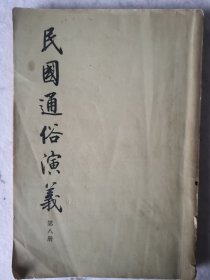 民國通俗演義
第八册